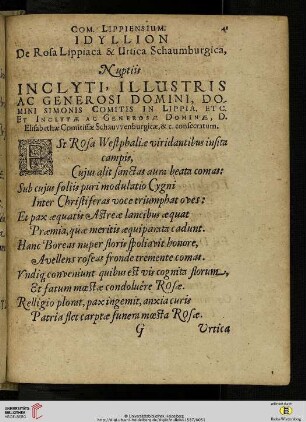 COM. LIPPIENSIUM.
IDYLLION
De Rosa Lippiaca & Urtica Schaumburgica,
Nuptiis
INCLYTI, ILLUSTRIS
AC GENEROSI DOMINI, DO-
MINI SIMONIS COMITIS IN LIPPIA, ETC.
ET INCLYTÆ AC GENEROSÆ DOMINÆ, D.
Elisabethæ Comitissæ Schauvvenburgicæ, & c. consecratum.
ESt Rosa Westphaliæ viridantibus insita
campis,
Cujus alit sanctas aura beata comas:
Sub cujus foliis puri modulatio Cygni
Inter Christiferas voce triumphat oves:
Et pax æquatis Astreæ lancibus æquat
Præmia, quæ meritis æquiparata cadunt.
Hanc Boreas nuper floris spoliavit honore,
Avellens roseas fronde tremente comas.
Vndiq, conveniunt quibus est vis cognita florum,
Et fatum mœstæ condoluêre Rosæ.
Relligio plorat, pax ingemit, anxia curis
Patria flet carptæ funera mœsta Rosæ.
G Urtica
UNIVERSITÄTS-
BIBLIOTHEK
HEIDELBERG
© Universitätsbibliothek Heidelberg